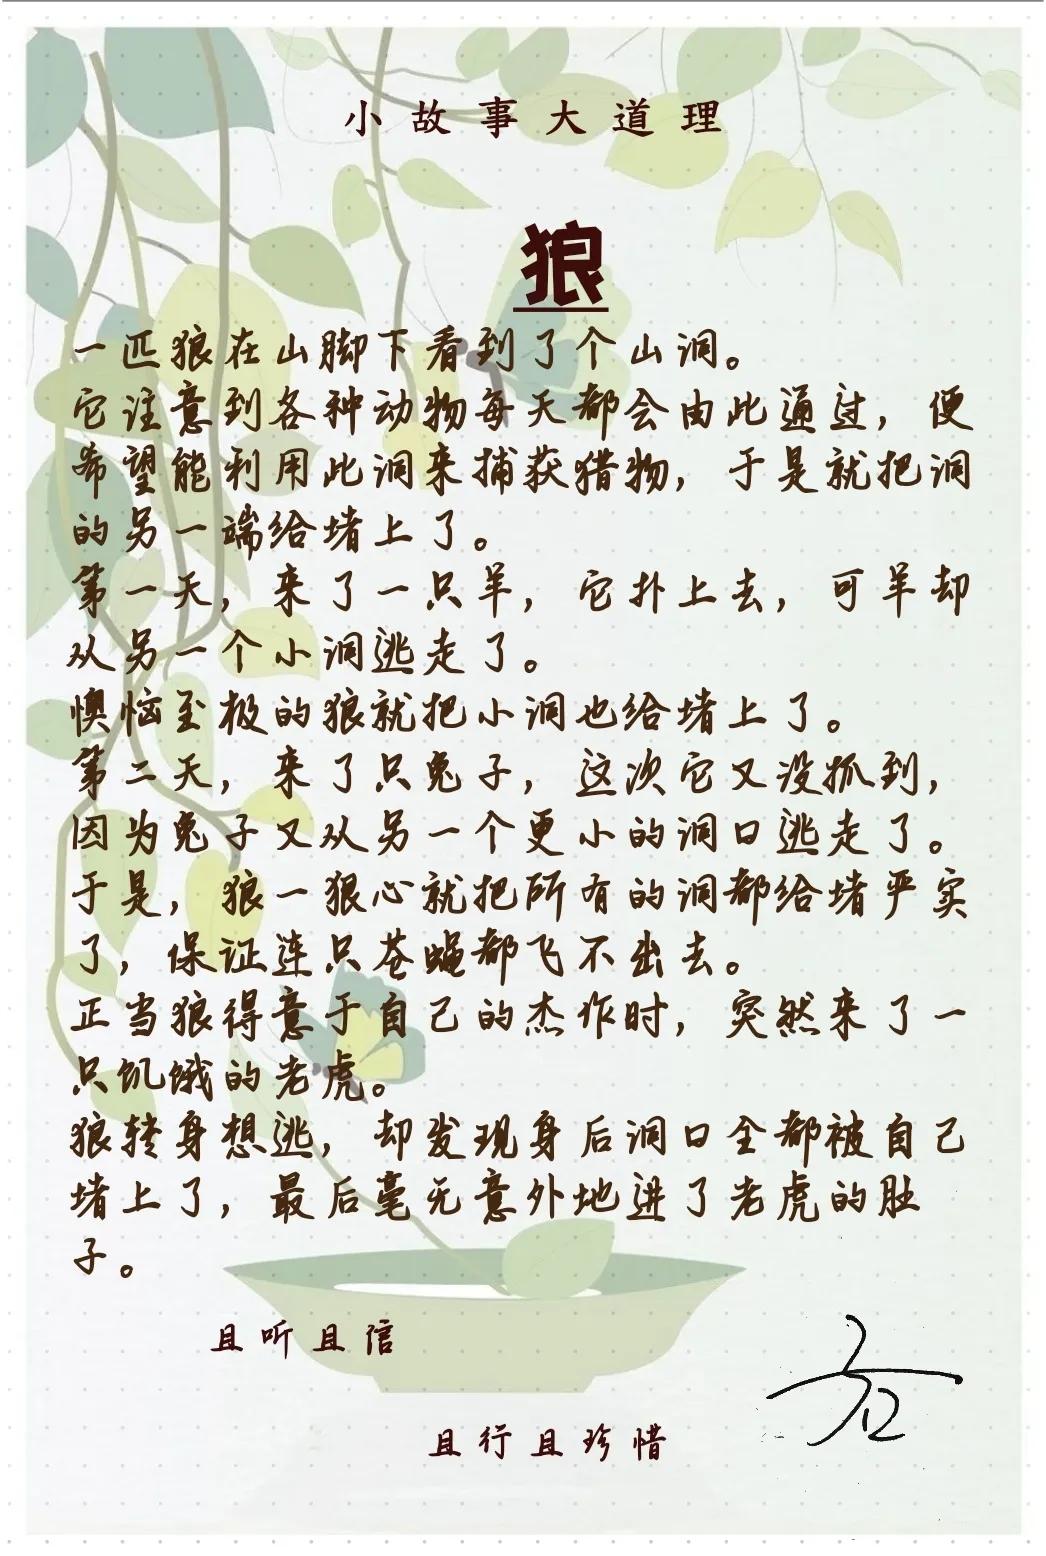 小故事大道理
狼
一匹狼在山脚下看到了个山洞。
它注意到各种动物每天都会由此通过，便
希望能利用此洞来捕获猎物，于是就把洞
的另一端给堵上了。
第一天，来了一只羊，它扑上去，可羊却
从另一个小洞逃走了。
懊恼至极的狼就把小洞也给堵上了。
第二天，来了只兔子，这次它又没抓到，
因为兔子又从另一个更小的洞口逃走了。
于是，狼一狠心就把所有的洞都给堵严实
了，保证连只苍蝇都飞不出去。
正当狼得意于自己的杰作时，突然来了一
只饥饿的老虎。
狼转身想逃，却发现身后洞口全都被自己
堵上了，最后毫无意外地进了老虎的肚
子。
且听且信
且行且珍惜